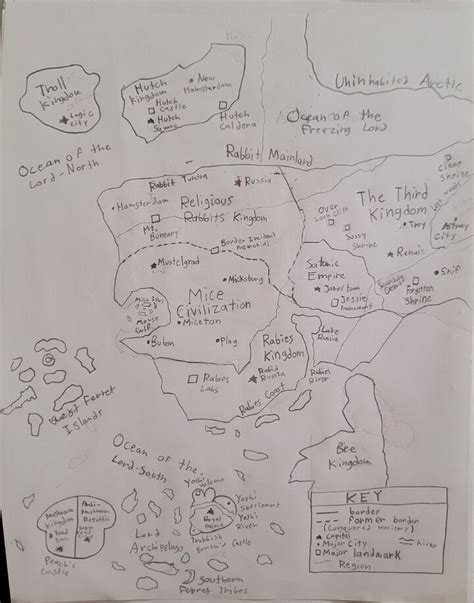 Troll
Kingdom
Logic
City
Hutch
Kingdom
Hutch
Castle
Hutch
Square
New
Hamsterdam
Hutch
Caldera
Uninhabited Arctic
Ocean of the
Freezing Lord
Ocean of the
Lord-North
Rabbit Mainland
Rabbit Tundra
Russia
Hamsterdam
Religious
Rabbits Kingdom
Mt.
Buneary
Border Incident
Memorial
The Third
Kingdom
Shrine
Troy
City
Sussy
Shrine
Renais
Shif
Forgotten
Shrine
Satanic
Empire
Janestown
Jessie
Mustelgrad
Micksburg
Mice
Civilization
Miceton
Mouse
Gulf
Bubon
Plag
Rabies
Kingdom
Lake
Russia
Rabies
Labs
Rabid
Russia
Rabies
River
Rabies Coast
Quebit Ferret
Islands
Bee
Kingdom
Ocean of the
Lord-South
Yoshi
Volcano
Yoshi
Settlement
Yoshi
River
Royal
Palace
Trabbish
Castle
Lord
Archpelago
Southern
Ferret Tribes
Mushroom
Kingdom
Toad
Town
Anti-
Mushroom
Republic
Peach's
Castle
KEY
border
Former border
(Conquered territory)
Capital
Major City
river
Major landmark
Region